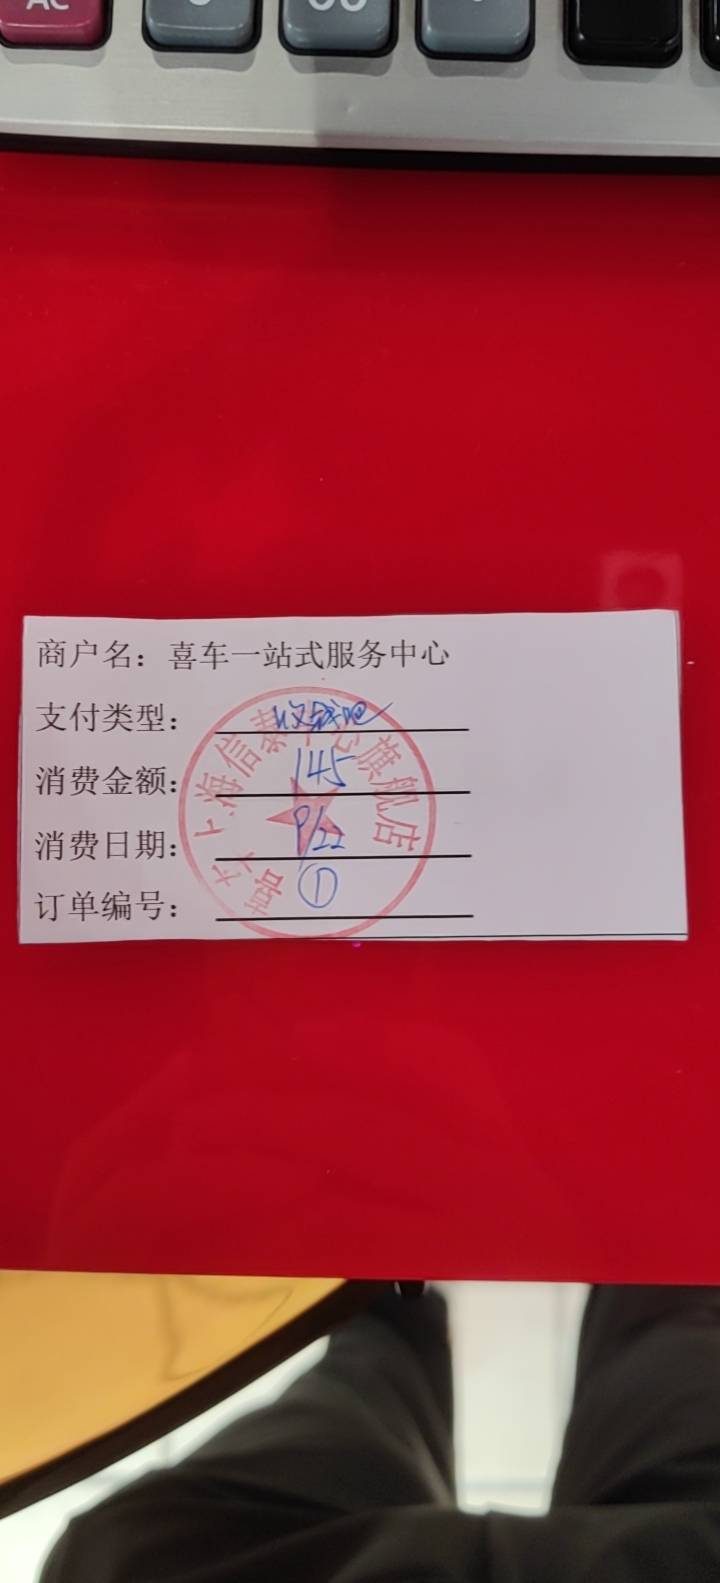 AC
00
商户名：喜车一站式服务中心
支付类型：收钱吧
消费金额：145
消费日期：9/22
订单编号：①
上海信泰中心旗舰店